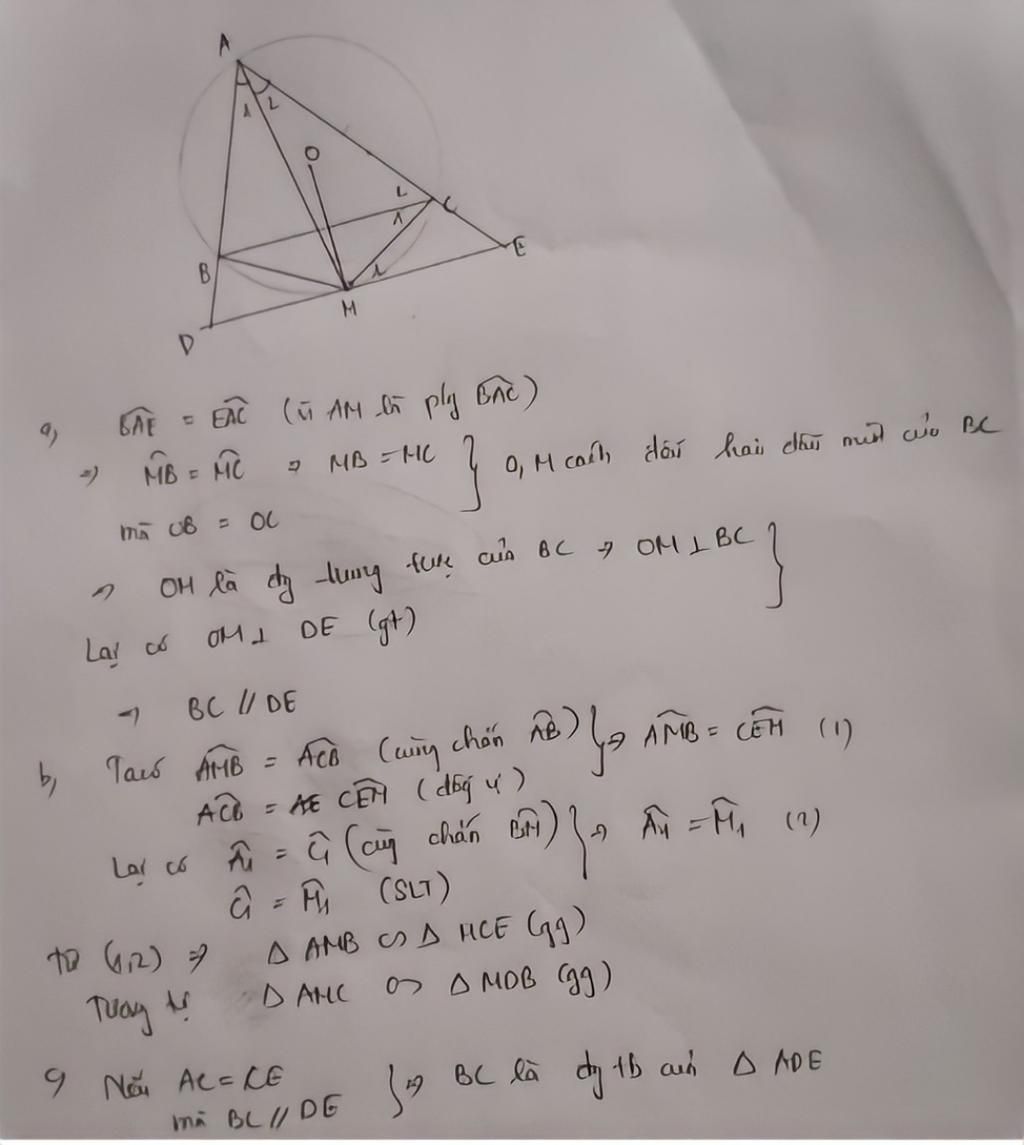 A
1 2
O
2
1
C
B
1
E
M
D
a, BAE = EAC (vì AM là p/g BAC)
=> MB = MC => MB = MC } O, M cách đều hai đầu mút của BC
mà OB = OC
=> OM là đg trung trực của BC => OM ⊥ BC }
Lại có OM ⊥ DE (gt)
→ BC // DE
b, Ta có AMB = ACB (cùng chắn AB) } => AMB = CEM (1)
ACB = CEM (đồng vị)
Lại có A1 = C1 (cùng chắn BM) } => A1 = M1 (2)
C1 = M1 (SLT)
từ (1,2) => Δ AMB ∽ Δ MCE (gg)
Tương tự Δ AMC ∽ Δ MDB (gg)
c, Nếu AC = CE } => BC là đg tb của Δ ADE
mà BC // DE